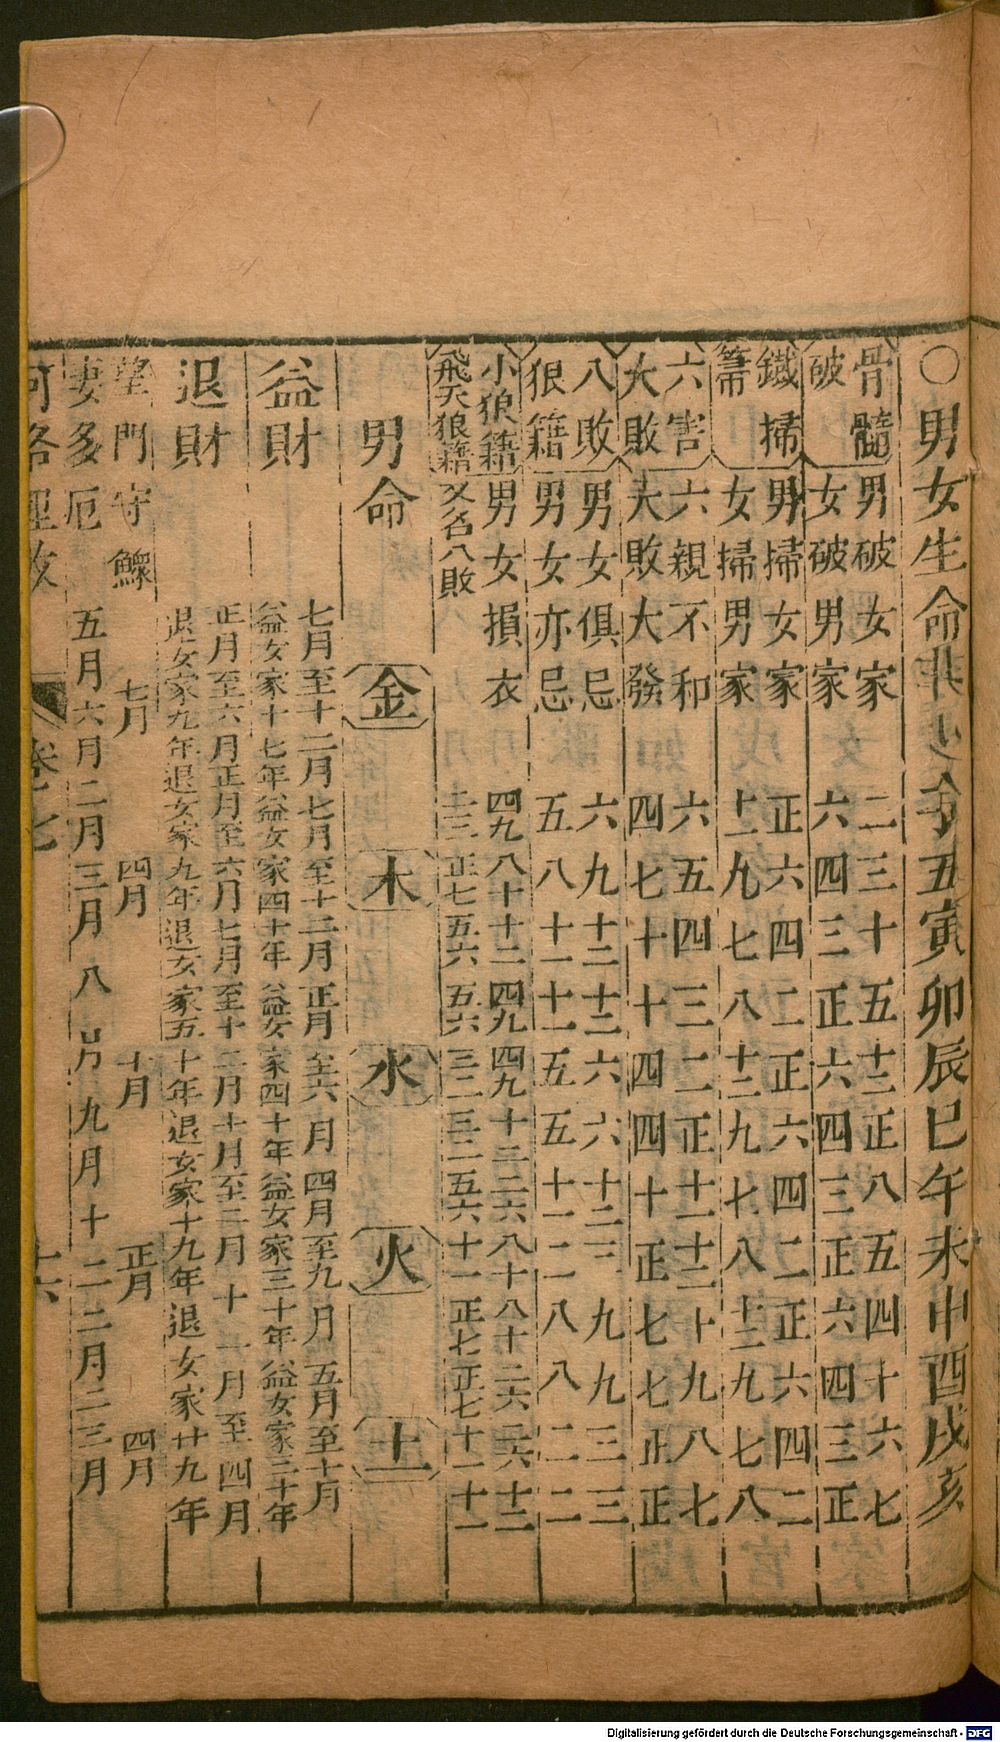 ○男女生命其忌子丑寅卯辰巳午未申酉戌亥
骨髓男破女家二三十五十二正八五四十六七
破女破男家六四三正六四三正六四三正
鐵掃男掃女家正六四二正六四二正六四二
箒女掃男家十二九七八十二九七八十二九七八
六害六親不和六五四三二正十二十一十九八七
大敗大敗大發四七十十四四十正七七正正
八敗男女俱忌六九十二十二六六十二二九九三三
狼籍男女亦忌五八十一十一五五十一二八八二二
小狼籍男女損衣
飛天狼籍又名八敗
男命 金 木 水 火 土
益財 七月至十二月 七月至十二月 正月至六月 四月至九月 五月至十月
益女家十七年 益女家四十年 益女家四十年 益女家三十年 益女家二十年
退財 正月至六月 正月至六月 七月至十二月 十月至三月 十一月至四月
退女家九年 退女家九年 退女家五十年 退女家十九年 退女家廿九年
望門守鰥 七月 四月 十月 正月 四月
妻多厄 五月六月二月三月八月九月十二二月二三月
卷七 十六
Digitalisierung gefördert durch die Deutsche Forschungsgemeinschaft - DFG